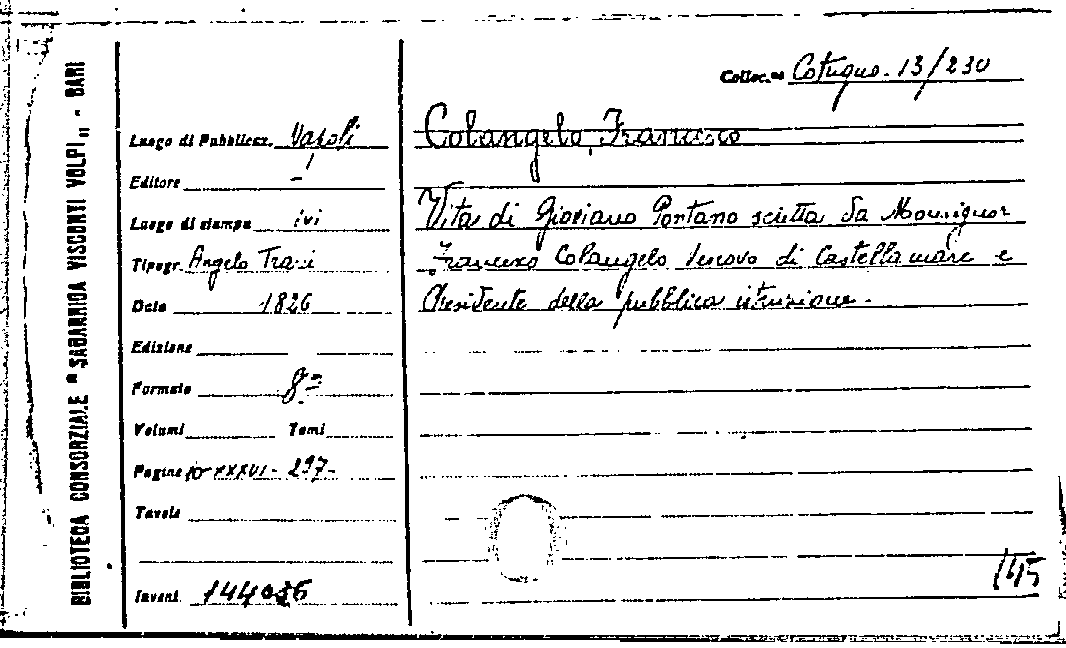 BIBLIOTECA CONSORZIALE "SAGARRIGA VISCONTI VOLPI" - BARI
Colloc.ne Cotugno. 13/230
Luogo di Pubblicaz. Napoli
Editore -
Luogo di stampa ivi
Tipogr. Angelo Trani
Data 1826
Edizione
Formato 8°
Volumi Tomi
Pagine XXXVI - 297-
Tavole
Invent.
Colangelo, Francesco
Vita di Gioviano Pontano scritta da Monsignor
Francesco Colangelo Vescovo di Castellamare e
Presidente della pubblica istruzione.
145